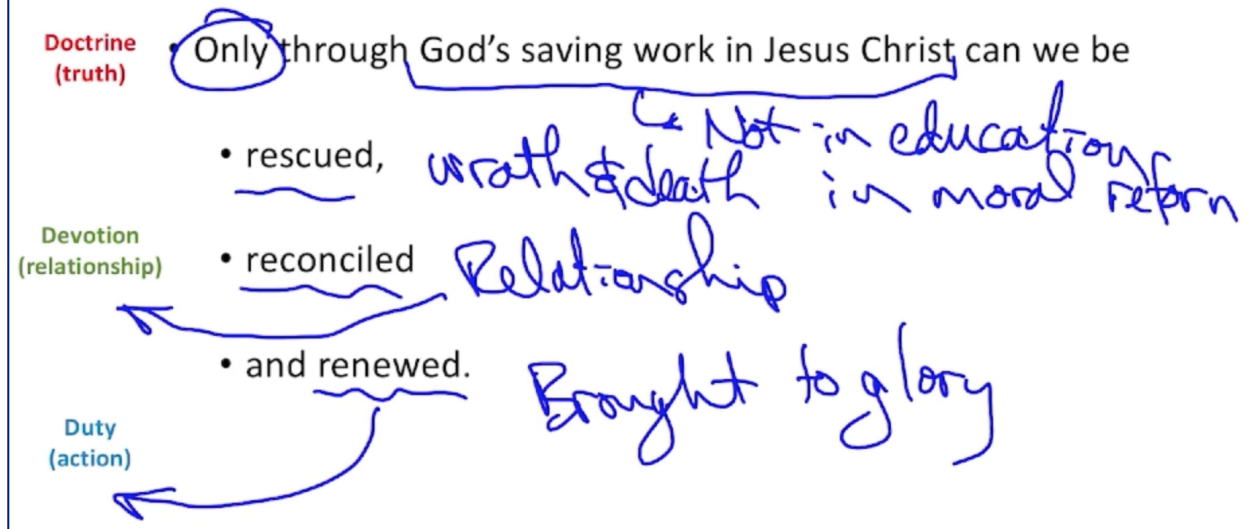 Doctrine
(truth)
• Only through God's saving work in Jesus Christ can we be
Not in education,
• rescued, wrath & death in moral reform
Devotion
(relationship)
• reconciled Relationship
• and renewed. Brought to glory
Duty
(action)